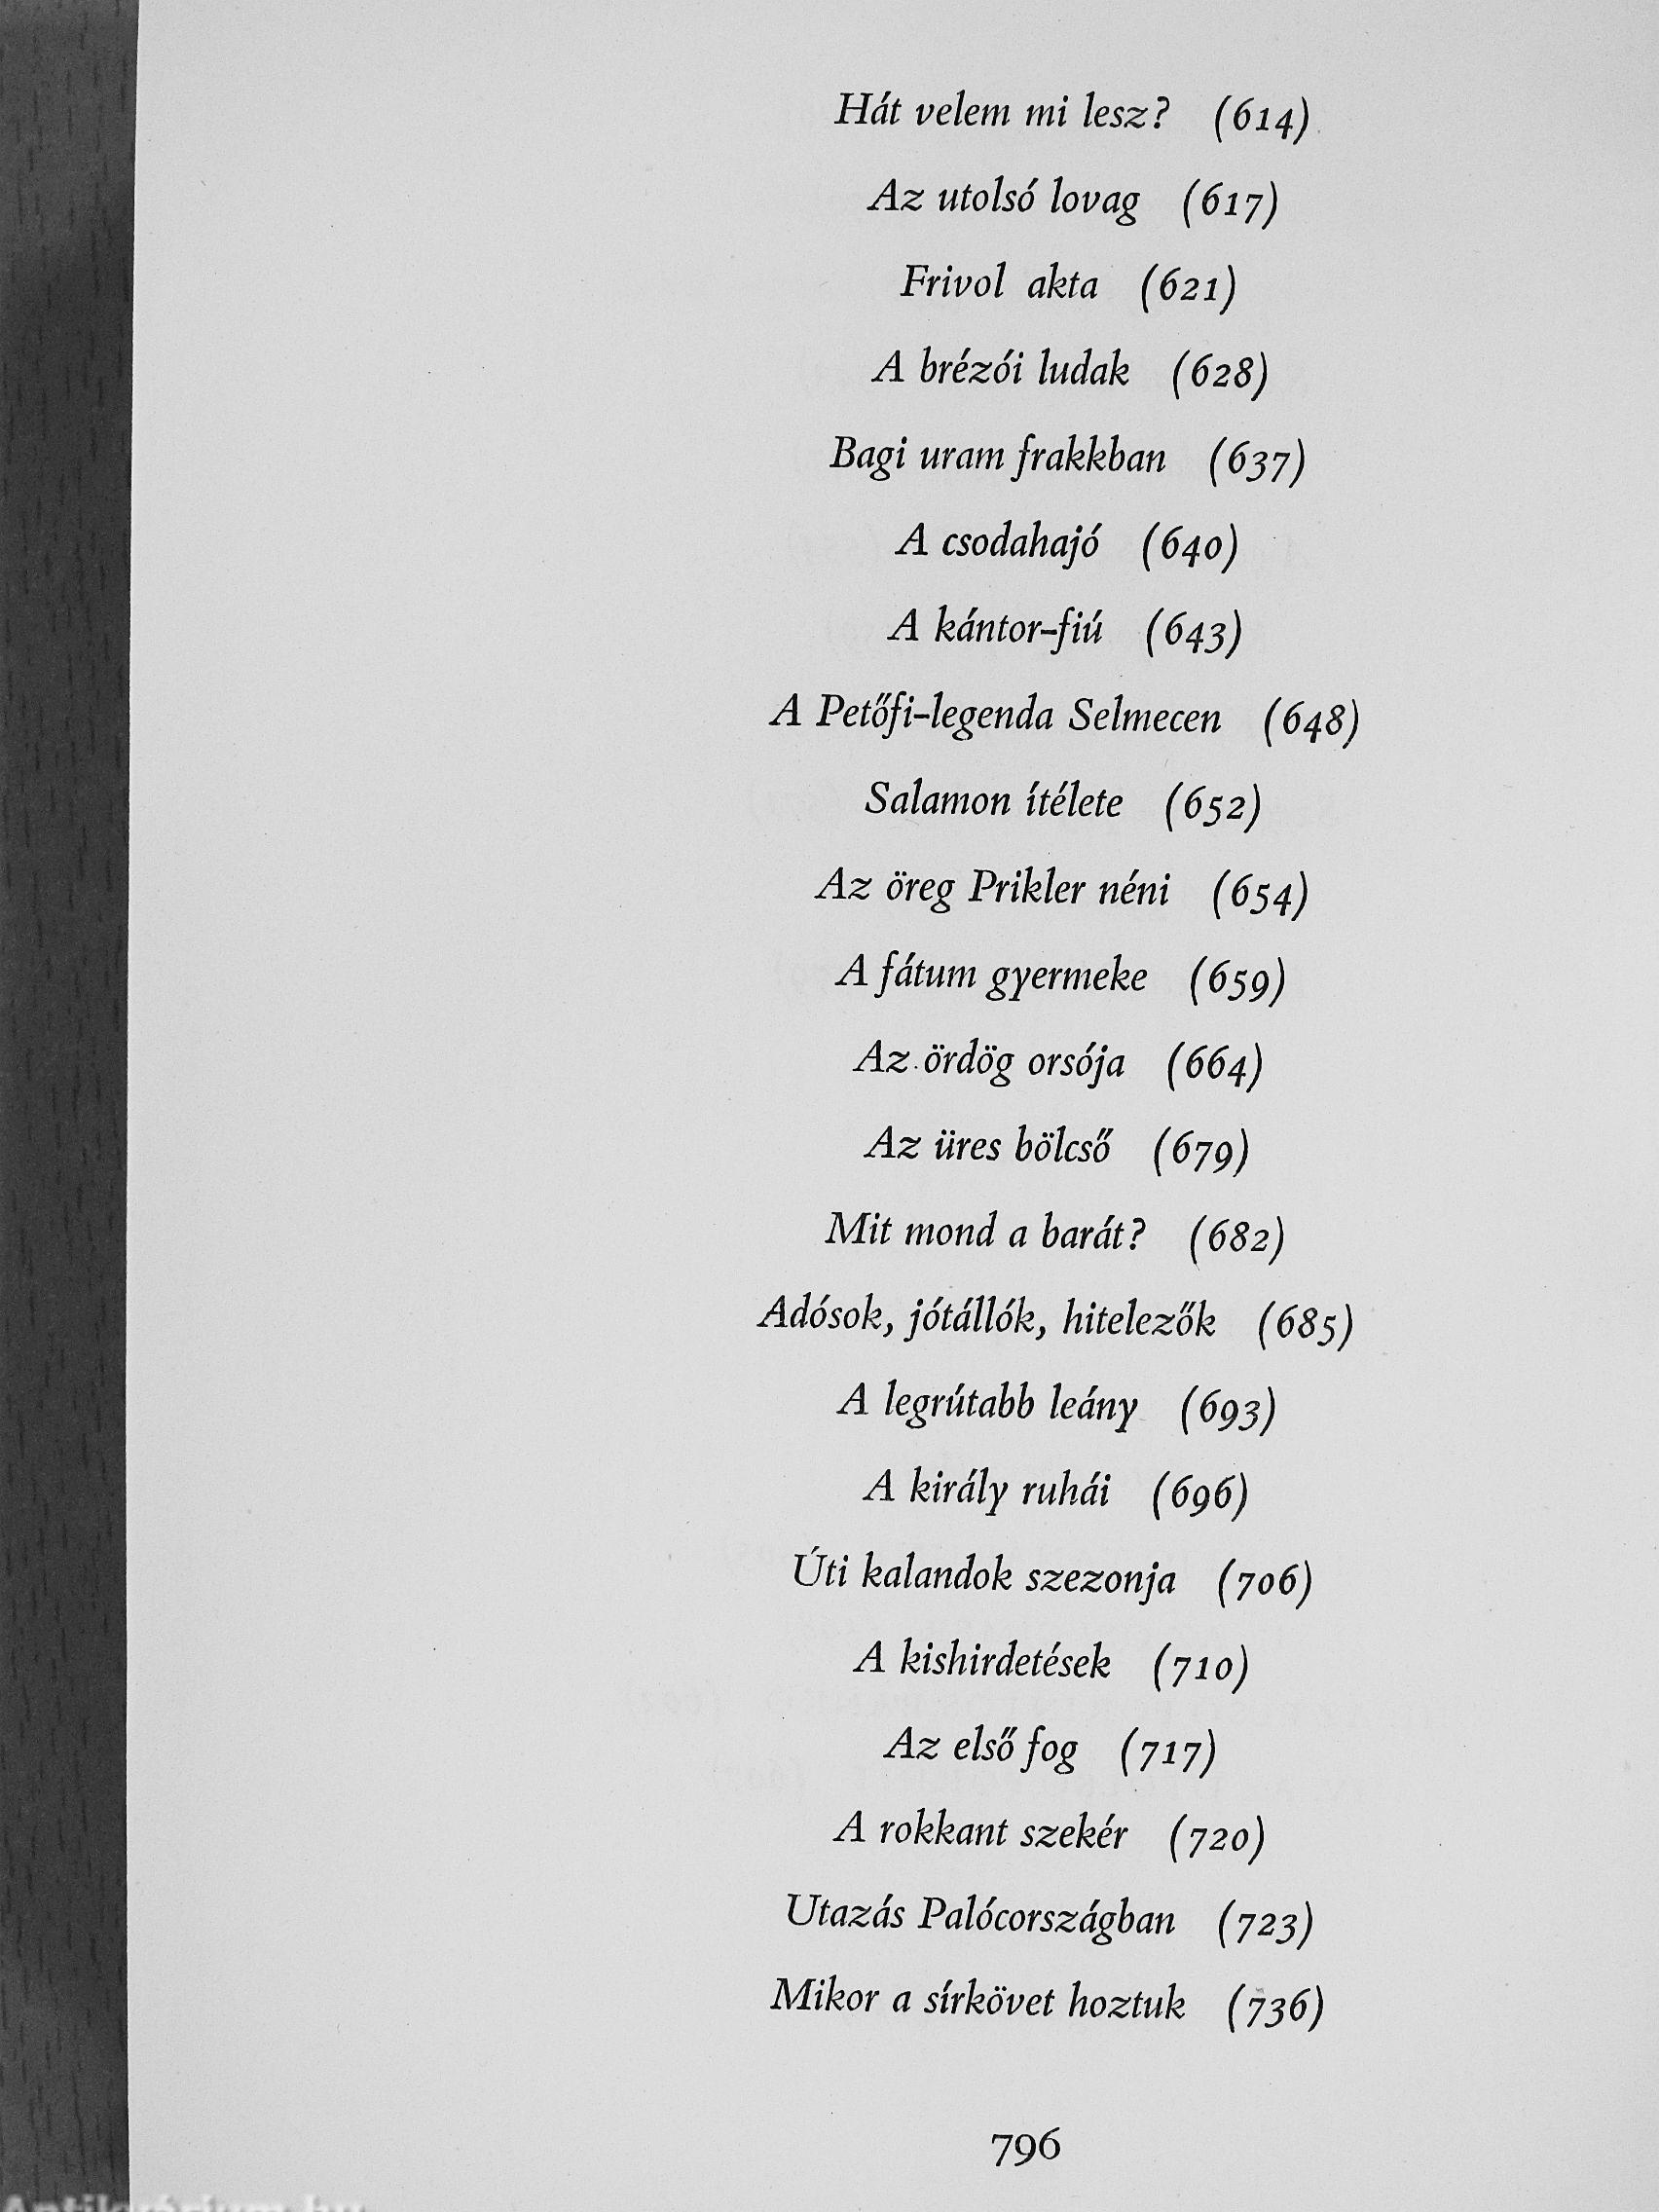 Hát velem mi lesz? (614)
Az utolsó lovag (617)
Frivol akta (621)
A brézói ludak (628)
Bagi uram frakkban (637)
A csodahajó (640)
A kántor-fiú (643)
A Petőfi-legenda Selmecen (648)
Salamon ítélete (652)
Az öreg Prikler néni (654)
A fátum gyermeke (659)
Az ördög orsója (664)
Az üres bölcső (679)
Mit mond a barát? (682)
Adósok, jótállók, hitelezők (685)
A legrútabb leány (693)
A király ruhái (696)
Úti kalandok szezonja (706)
A kishirdetések (710)
Az első fog (717)
A rokkant szekér (720)
Utazás Palócországban (723)
Mikor a sírkövet hoztuk (736)
796